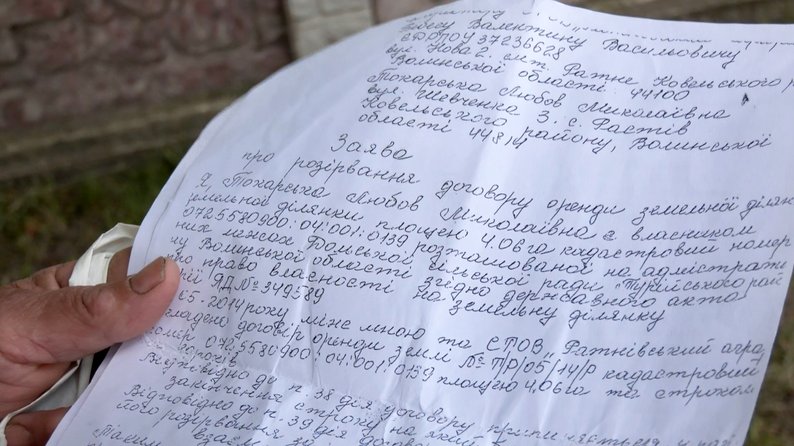 Бебесу Валентину Васильовичу
ЄДРПОУ 37236628
вул. Нова 2, смт. Ратне Ковельського
Волинської області 44100
Токарська Любов Миколаївна
вул. Шевченка 3, с. Растів
Ковельського району, Волинської
області 44814
Заява
про розірвання договору оренди земельної ділян
Я, Токарська Любов Миколаївна є власником
земельної ділянки площею 4.06 га кадастровий номер
0725580900:04:001:0139 розташованої на адміністрати
них межах сільської ради Турійського рай
ну Волинської області згідно державного акта
про право власності на земельну ділянку
рії ЯД №349589
5-2014 року між мною та СТОВ „Ратнівський аграр
кладено договір оренди землі №ТР/05/14/Р кадастровий
номер 0725580900:04:001:0139 площею 4,06 га та строком
років
Відповідно до п. 38 дія договору припиняється у разі
закінчення строку на який
Відповідно до п. 39 дія договору
його розірвання
взаєм